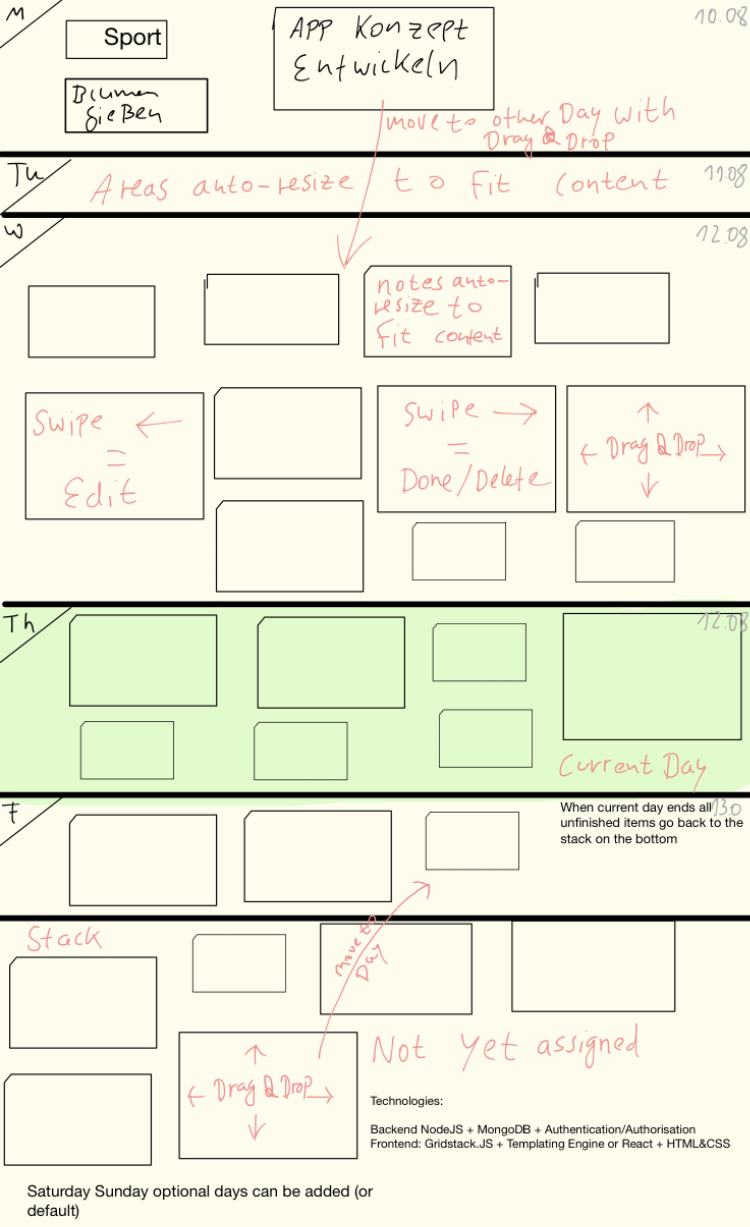 M
10.08
Sport
APP Konzept
Entwickeln
Blumen
gießen
move to other Day with
Drag & Drop
Tu
11.08
Areas auto-resize to fit content
W
12.08
notes auto-
resize to
fit content
Swipe ←
=
Edit
Swipe →
=
Done/Delete
↑
← Drag & Drop →
↓
Th
12.08
Current Day
F
13.0
When current day ends all
unfinished items go back to the
stack on the bottom
Stack
move to
Day
Not yet assigned
↑
← Drag & Drop →
↓
Technologies:
Backend NodeJS + MongoDB + Authentication/Authorisation
Frontend: Gridstack.JS + Templating Engine or React + HTML&CSS
Saturday Sunday optional days can be added (or
default)